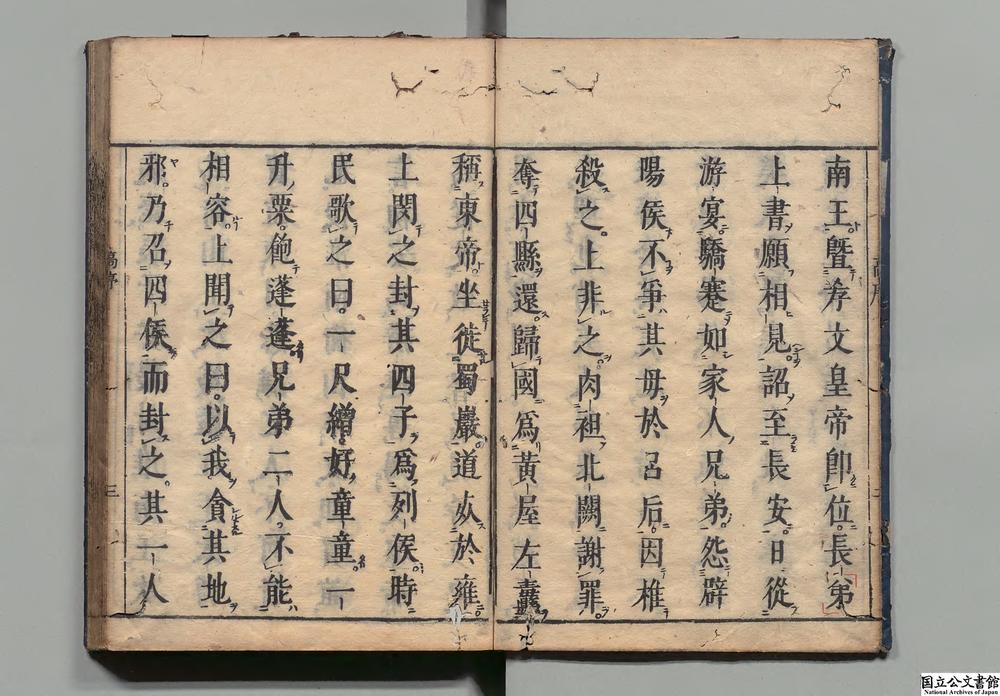 南王曁孝文皇帝即位長弟
上書願相見詔至長安日從
游宴驕蹇如家人兄弟怨辟
陽侯不爭其母於呂后因椎
殺之上非之肉袒北闕謝罪
奪四縣還歸國爲黃屋左纛
稱東帝坐徙蜀嚴道死於雍
上閔之封其四子爲列侯時
民歌之曰一尺繒好童童一
升粟飽蓬蓬兄弟二人不能
相容上聞之曰以我貪其地
邪乃召四侯而封之其一人
高序
三
国立公文書館
National Archives of Japan